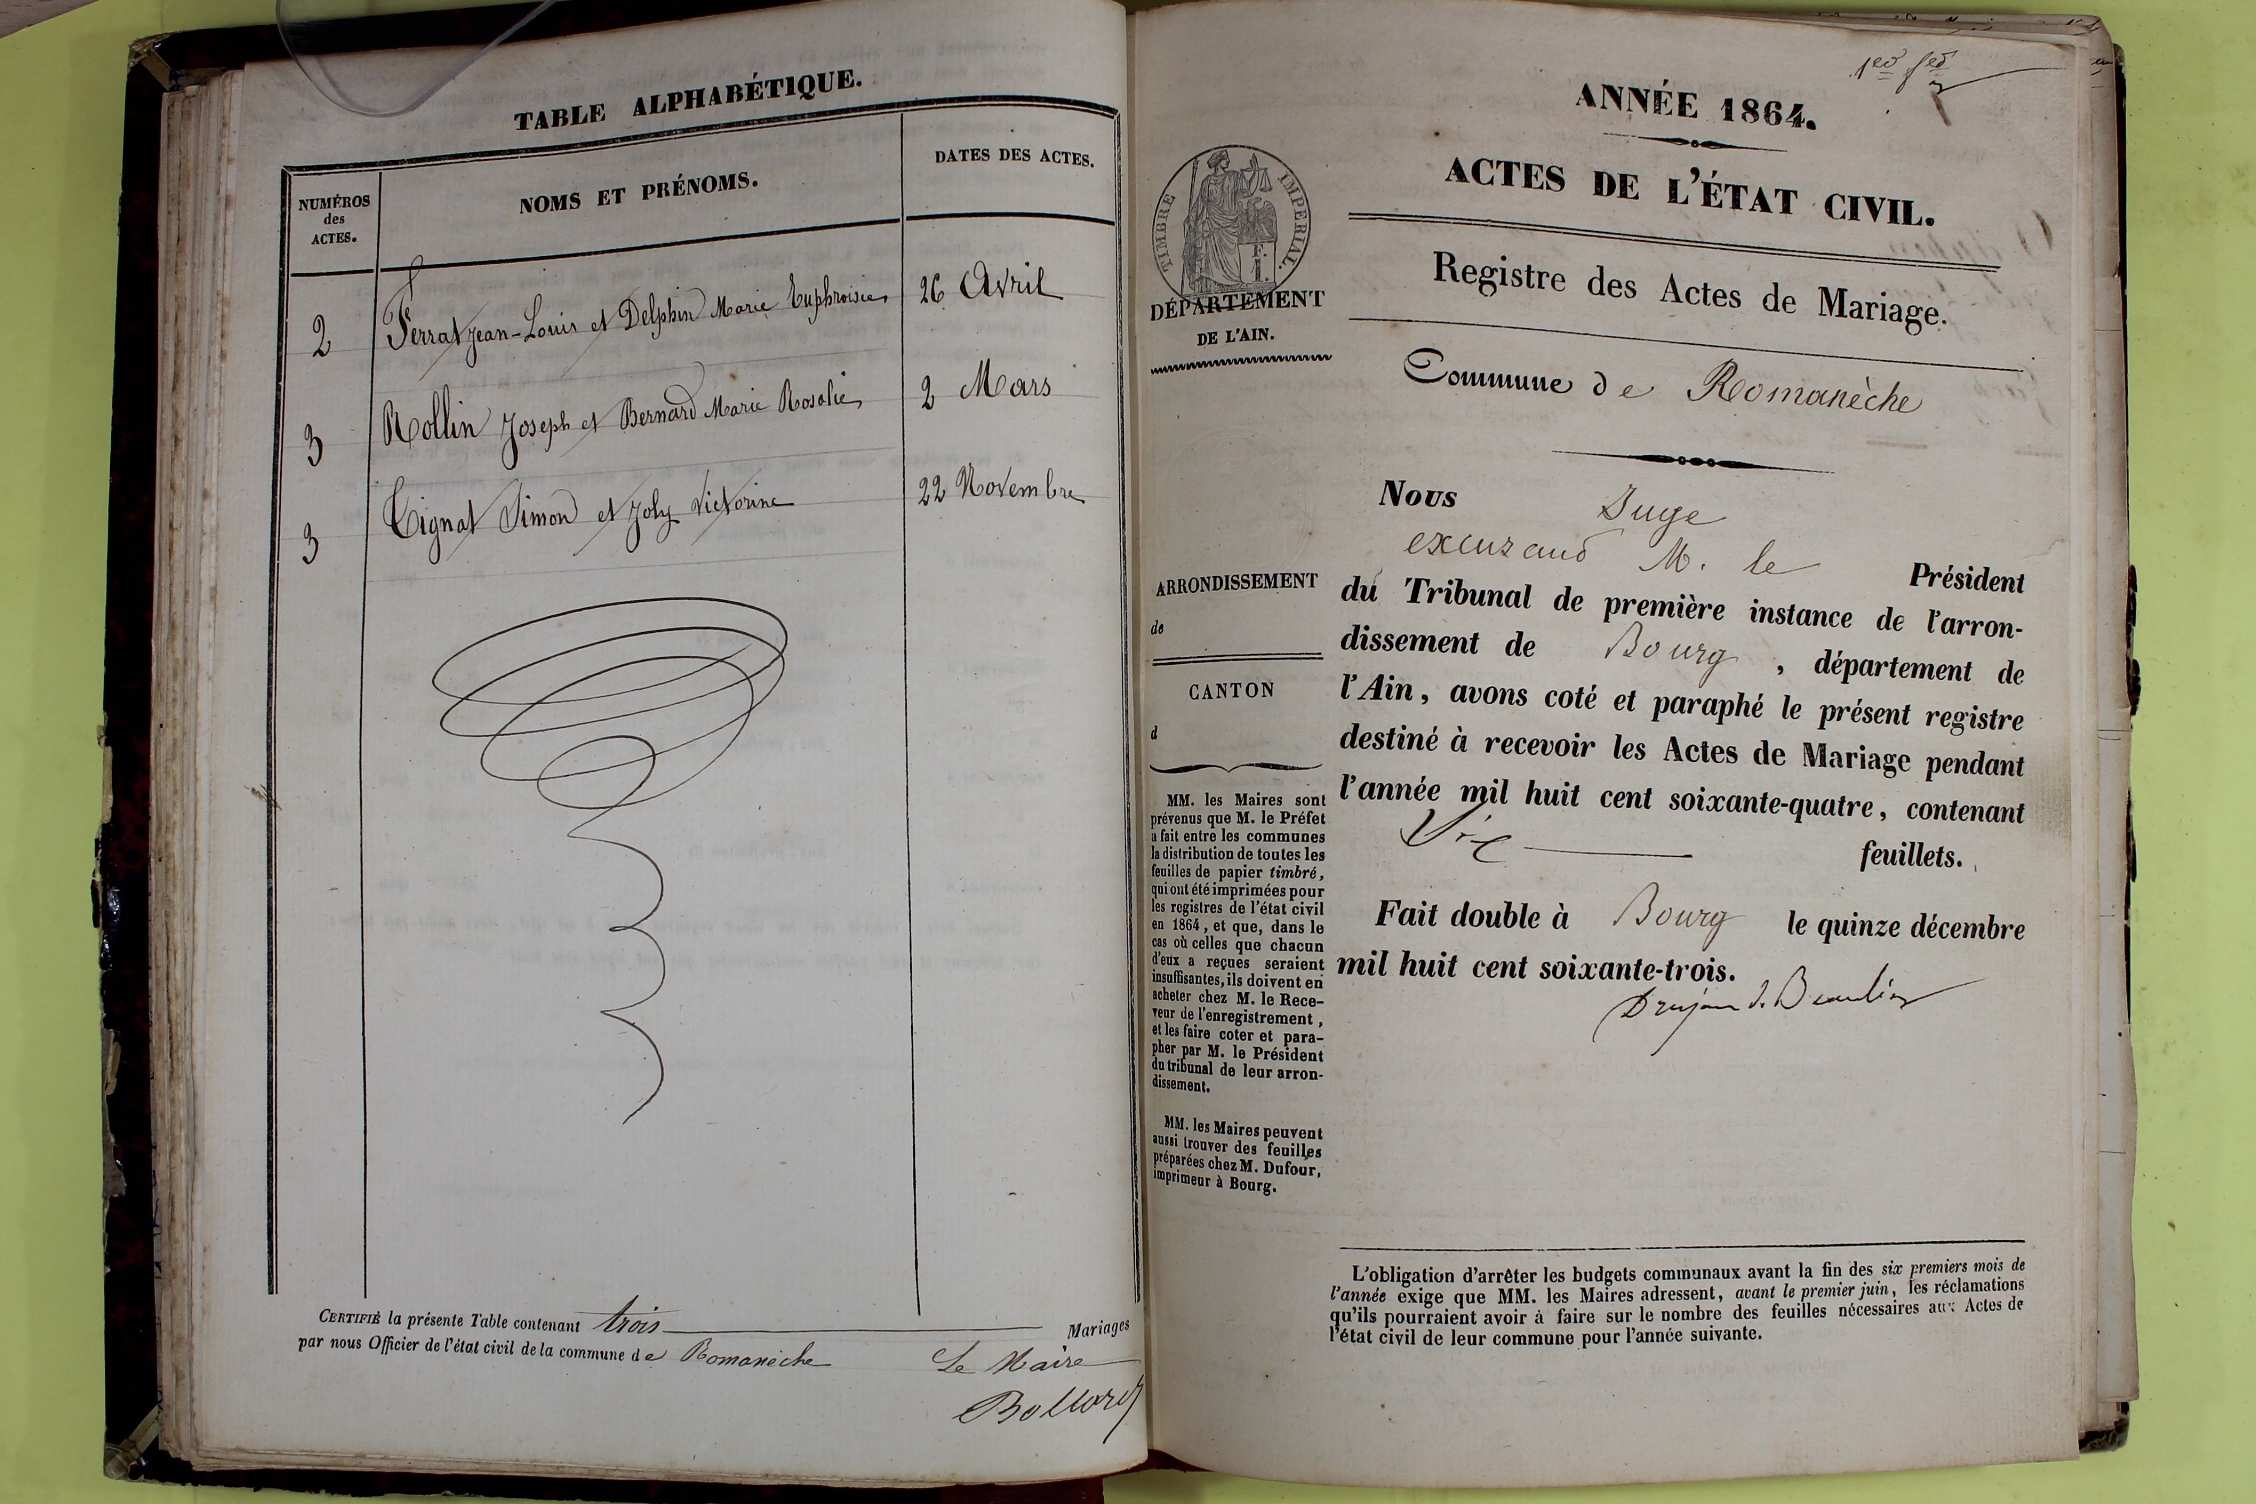 TABLE ALPHABÉTIQUE.
NUMÉROS
des
ACTES.
NOMS ET PRÉNOMS.
DATES DES ACTES.
2 Ferrat Jean-Louis et Delphin Marie Euphroisie 26 Avril
3 Rollin Joseph et Bernard Marie Rosalie 2 Mars
3 Tignat Simon et Joly Victorine 22 Novembre
CERTIFIÉ la présente Table contenant trois Mariages
par nous Officier de l'état civil de la commune de Romanèche
Le Maire
1er
ANNÉE 1864.
ACTES DE L'ÉTAT CIVIL.
TIMBRE IMPÉRIAL.
Registre des Actes de Mariage.
DÉPARTEMENT
DE L'AIN.
Commune de Romanèche
ARRONDISSEMENT
de
CANTON
d
MM. les Maires sont
prévenus que M. le Préfet
a fait entre les communes
la distribution de toutes les
feuilles de papier timbré,
qui ont été imprimées pour
les registres de l'état civil
en 1864, et que, dans le
cas où celles que chacun
d'eux a reçues seraient
insuffisantes, ils doivent en
acheter chez M. le Rece-
veur de l'enregistrement,
et les faire coter et para-
pher par M. le Président
du tribunal de leur arron-
dissement.
MM. les Maires peuvent
aussi trouver des feuilles
préparées chez M. Dufour,
imprimeur à Bourg.
Nous Juge
M. le Président
du Tribunal de première instance de l'arron-
dissement de Bourg, département de
l'Ain, avons coté et paraphé le présent registre
destiné à recevoir les Actes de Mariage pendant
l'année mil huit cent soixante-quatre, contenant
feuillets.
Fait double à Bourg le quinze décembre
mil huit cent soixante-trois.
L'obligation d'arrêter les budgets communaux avant la fin des six premiers mois de
l'année exige que MM. les Maires adressent, avant le premier juin, les réclamations
qu'ils pourraient avoir à faire sur le nombre des feuilles nécessaires aux Actes de
l'état civil de leur commune pour l'année suivante.